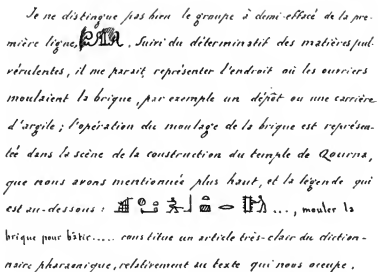 Je ne distingue pas bien le groupe à demi-effacé de la pre-
mière ligne, . Suivi du déterminatif des matières pul-
vérulentes, il me paraît représenter l'endroit où les ouvriers
moulaient la brique, par exemple un dépôt ou une carrière
d'argile ; l'opération du moulage de la brique est représen-
tée dans la scène de la construction du temple de Qourna,
que nous avons mentionnée plus haut, et la légende qui
est au-dessous : ..., mouler la
brique pour bâtir..... constitue un article très-clair du diction-
naire pharaonique, relativement au texte qui nous occupe.